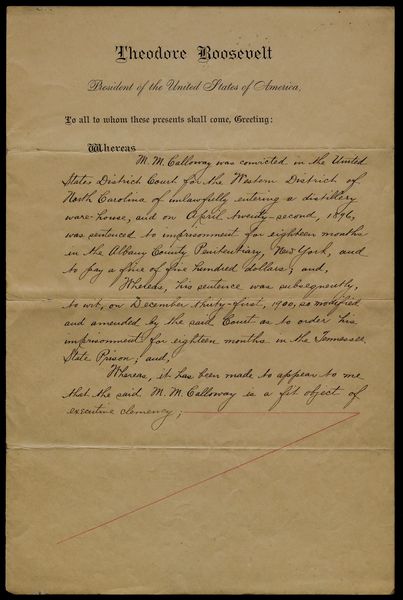 Theodore Roosevelt
President of the United States of America,
To all to whom these presents shall come, Greeting:
Whereas
M. M. Calloway was convicted in the United
States District Court for the Western District of
North Carolina of unlawfully entering a distillery
ware-house, and on April twenty-second, 1896,
was sentenced to imprisonment for eighteen months
in the Albany County Penitentiary, New York, and
to pay a fine of five hundred dollars; and,
Whereas, his sentence was subsequently,
to wit, on December thirty-first, 1900, so modified
and amended by the said Court as to order his
imprisonment for eighteen months in the Tennessee
State Prison; and,
Whereas, it has been made to appear to me
that the said M. M. Calloway is a fit object of
executive clemency;